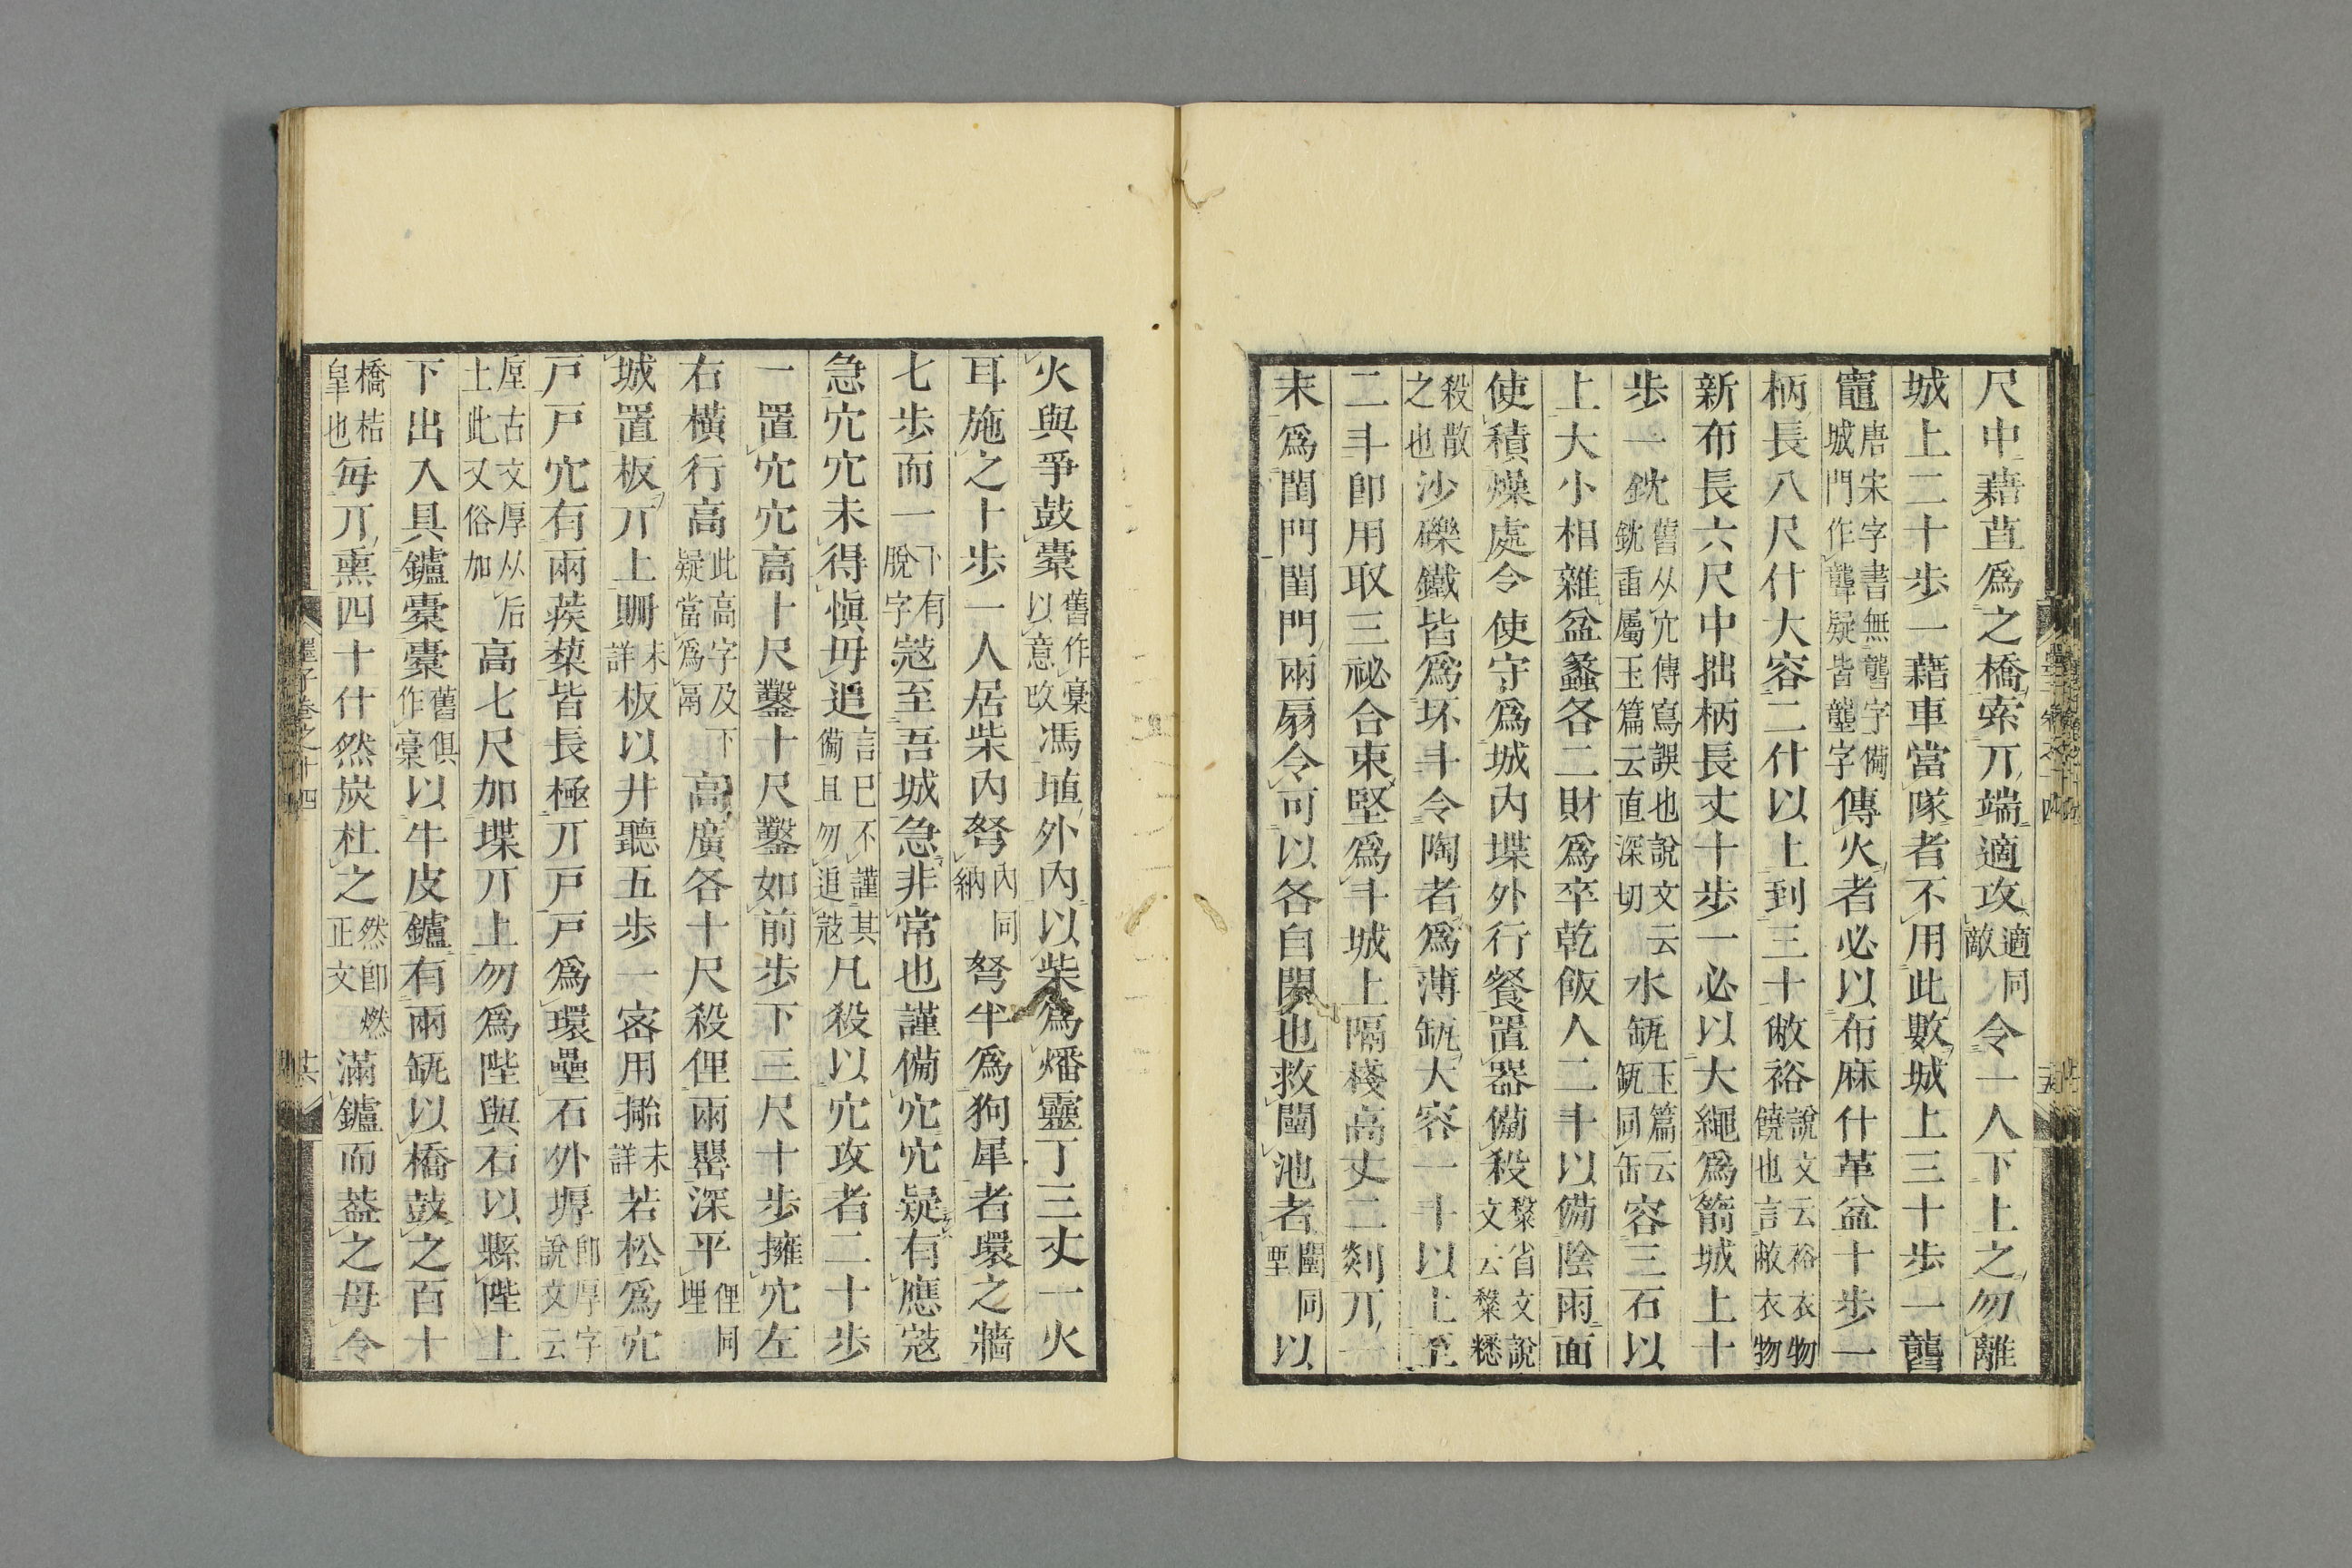 尺中藉苴爲之橋索丌端適攻適同敵令一人下上之勿離
城上二十步一藉車當隊者不用此數城上三十步一礱
竈唐宋字書無礱字備城門作聾疑皆壟字傳火者必以布麻什革盆十步一
柄長八尺什大容二什以上到三十敝裕說文云裕衣物饒也言敝衣物
新布長六尺中拙柄長丈十步一必以大繩爲箭城上十
步一鈂舊从宂傳寫誤也說文云鈂臿屬玉篇云直深切水瓵玉篇云瓵同缶容三石以
上大小相雜盆蠡各二財爲卒乾飯人二斗以備陰雨面
使積燥處令使守爲城內堞外行餐置器備殺䊝省文說文云䊝䊛
殺散之也沙礫鐵皆爲坏斗令陶者爲薄瓵大容一斗以上至
二斗卽用取三祕合束堅爲斗城上隔棧高丈二剡丌一
末爲閨門閨門兩扇令可以各自閉也救闉池者闉同垔以
火與爭鼓橐舊作稾以意改馮埴外內以柴爲燔靈丁三丈一火
耳施之十步一人居柴內弩內同納弩半爲狗犀者環之牆
七步而一下有脫字寇至吾城急非常也謹備穴穴疑有應寇
急穴穴未得愼毋追言已不謹其備且勿追寇凡殺以穴攻者二十步
一置穴穴高十尺鑿十尺鑿如前步下三尺十步擁穴左
右橫行高此高字及下疑當爲鬲高廣各十尺殺俚兩罌深平俚同埋
城置板丌上𠕋未詳板以井聽五步一密用𢵧未詳若松爲穴
戸戸穴有兩蒺藜皆長極丌戸戸爲環壘石外塓卽厚字說文云
垕古文厚从后土此又俗加高七尺加堞丌上勿爲陛與石以縣陛上
下出入具鑪橐橐舊俱作稾以牛皮鑪有兩瓵以橋鼓之百十
橋桔皐也每丌熏四十什然炭杜之然卽燃正文滿鑪而葢之毋令
墨子卷之十四 共